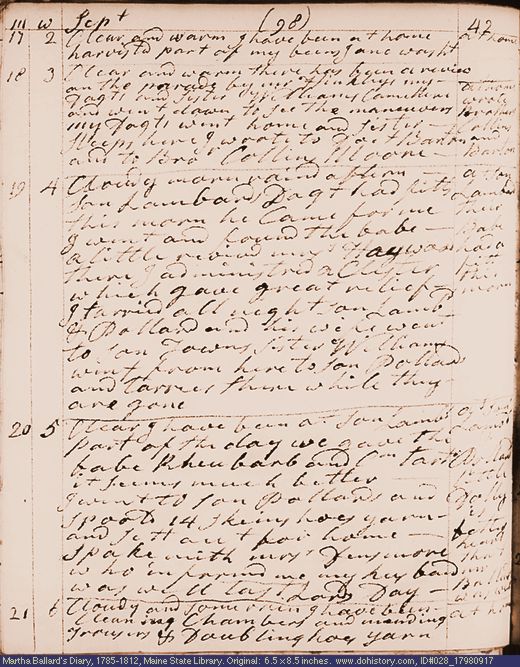 m w Sept (98) 42
17 2 Clear and warm I have been at home at home
harvest part of my beins Jane washt
18 3 Clear and warm there has been a review
on the parade by
Dagts and Sister Williams Came here at home
and went down to see the maneuvers wrote
my Dagts went home and Sister
Sleeps here I wrote to Doct Barton
and to Bror Collins Moore Barton
19 4 Cloudy morn raind aftern at Son
Son Lambard Dagt had fits Lambds
this morn he Came for me his
I went and found the babe Babe
a little revivd mrs was had a
there I administred a Clister fit
which gave great relief this
I tarried all night Son Lamb morn
& Pollard and his wife went
to Son Towns Sister Williams
went from here to Son Pollards
and tarries there while they
are gone
20 5 Clear I have been at Son Lambds at Son
part of the day we gave the Lambds
babe Rheubarb and Crm Tartr
it seems much better
I went to Son Pollards and
Spoold 14 skeins hoes yarn is
and Set out for home better
Spake with mrs Densmore heard
who informd me my husband that
was well last Lords Day
21 6 Cloudy and some rain I have been at home
Cleaning Chambers and mending
trousers & Doubling hoes yarn
Martha Ballard's Diary, 1785-1812, Maine State Library. Original: 6.5 x 8.5 inches. www.dohistory.com, ID#028_17980917